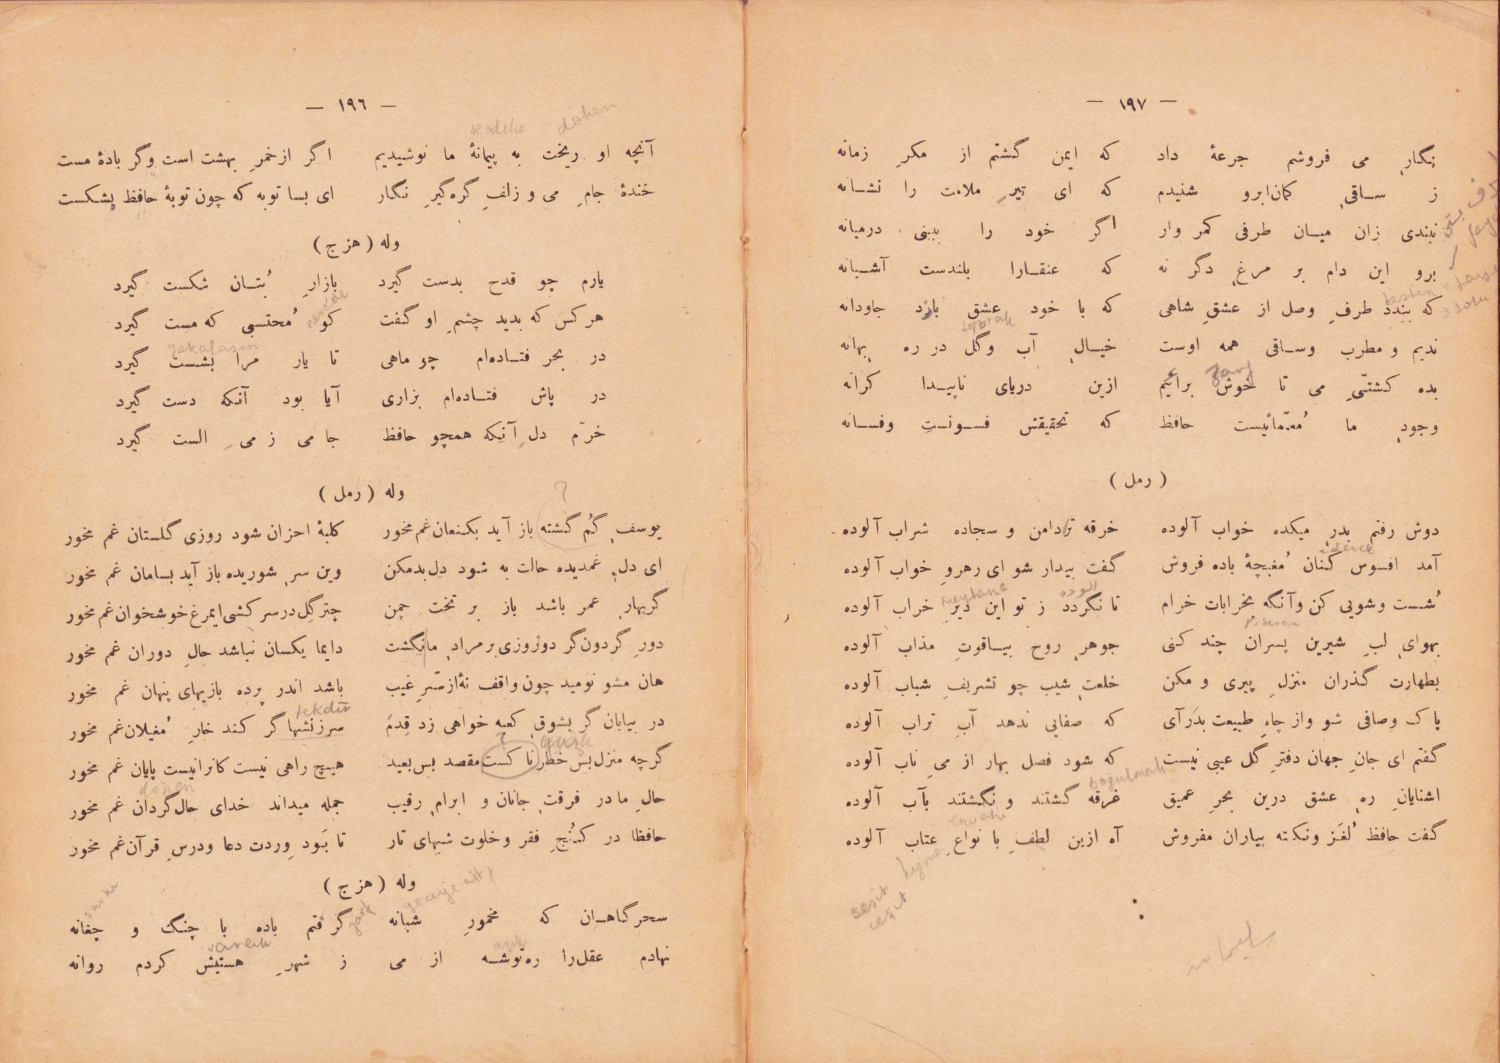 — ١٩٦ —
kadehe döken
آنچه او ریخت به پیمانهٔ ما نوشیدیم اگر ازخمرِ بهشت است وگر بادهٔ مست
خندهٔ جامِ می و زلفِ گره‌گیرِ نگار ای بسا توبه که چون توبهٔ حافظ بشکست
وله (هزج)
یارم چو قدح بدست گیرد بازارِ بُتـان شکست گیرد
هرکس که بدید چشمِ او گفت کو مُحتسبی که مست گیرد
nerede
در بحر فتـاده‌ام چو ماهی تا یار مرا بشست گیرد
yakalasın
در پاش فتـاده‌ام بزاری آیا بود آنکه دست گیرد
خرّم دلِ آنکه همچو حافظ جامی ز میِ الست گیرد
وله (رمل)
?
یوسفِ گُم گشته باز آید بکنعان غم مخور کلبهٔ احزان شود روزی گلستان غم مخور
ای دلِ غمدیده حالت به شود دل بدمکن وین سرِ شوریده باز آید بسامان غم مخور
گربهارِ عمر باشد باز بر تخت چمن چترگل درسرکشی ایمرغ خوشخوان غم مخور
دورِ گردون گر دوروزی برمرادِ مانگشت دایما یکسان نباشد حالِ دوران غم مخور
هان مشو نومید چون واقف نهٔ ازسّرِ غیب باشد اندر پرده بازیهای پنهان غم مخور
tekdir
در بیابان گر بشوقِ کعبه خواهی زد قدم سرزنشها گر کند خارِ مُغیلان غم مخور
?
گرچه منزل بس خطرناکست مقصد بس بعید هیـچ راهی نیست کانرانیست پایان غم مخور
dönen
حالِ ما در فرقتِ جانان و ابرامِ رقیب جمله میداند خدای حال‌گردان غم مخور
حافظا در کُنجِ فقر وخلوت شبهای تار تا بَود وِردت دعا ودرسِ قرآن غم مخور
وله (هزج)
سحرگاهـان که مخمورِ شبانه گرفتم باده با چنگ و چغانه
نهادم عقل‌را ره‌توشـه از می ز شهرِ هستیش کردم روانه
azık
— ١٩٧ —
نگارِ می فروشم جرعهٔ داد که ایمن گشتم از مکرِ زمانه
ز ساقیِ کمان‌ابرو شنیدم که ای تیرِ ملامت را نشـانه
نبندی زان میـان طرفی کمر وار اگر خود را ببینی درمیانه
برو این دام بر مرغِ دگر نه که عنقـارا بلندست آشـیانه
که بندد طرفِ وصل از عشقِ شاهی که با خود عشق بازد جاودانه
toprak
ندیم و مطرب وسـاقی همه اوست خیـالِ آب وگل در ره بهانه
بده کشتّیِ می تا خوش برانیم ازین دریای ناپیـدا کرانه
وجودِ ما مُعمّائیست حافظ که تحقیقش فسـونست وفسـانه
(رمل)
دوش رفتم بدرِ میکده خواب آلوده خرقه تردامن و سجاده شراب آلوده
ederek
آمد افسوس کُنان مُغبچهٔ باده فروش گفت بیدار شو ای رهروِ خواب آلوده
meyhane آلوده
شُست وشویی کن وآنگه بخرابات خرام تا نگردد ز تو این دیرِ خراب آلوده
بهوایِ لبِ شیرین پسران چند کنی جوهرِ روح بیـاقوتِ مذاب آلوده
بطهارت گذران منزلِ پیری و مکن خلعتِ شیب چو تشریفِ شباب آلوده
پاک وصافی شو واز چاهِ طبیعت بدَرآی که صفایی ندهد آبِ تراب آلوده
گفتم ای جانِ جهان دفترِ گل عیبی نیست که شود فصل بهار از میِ ناب آلوده
boğulmak
اشنایانِ رهِ عشق درین بحرِ عمیق غرقه گشتند و نگشتند بآب آلوده
گفت حافظ لُغَز ونکته بیاران مفروش آه ازین لطفِ با نواعِ عتاب آلوده